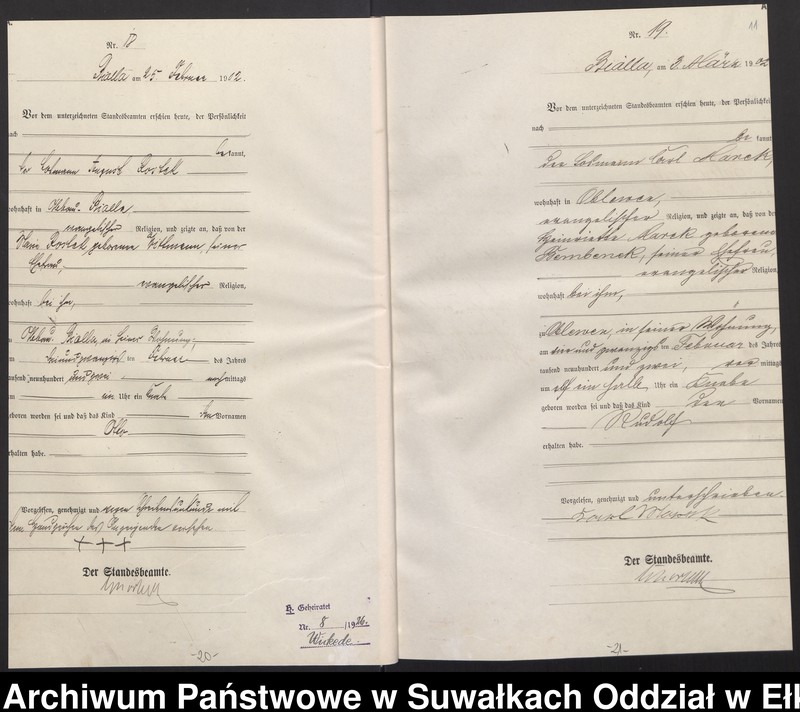 Nr. 18
Bialla am 25. Februar 1902.
Vor dem unterzeichneten Standesbeamten erschien heute, der Persönlichkeit
nach
bekannt,
der Losmann August Rostek
wohnhaft in Abbau Bialla
evangelischer Religion, und zeigte an, daß von der
Rostek geborene seiner
Ehefrau,
evangelischer Religion,
wohnhaft bei ihm,
Abbau Bialla, in seiner Wohnung,
ten Februar des Jahres
tausend neunhundert und zwei nachmittags
um Uhr ein Knabe
geboren worden sei und daß das Kind den Vornamen
Otto
erhalten habe.
Vorgelesen, genehmigt und wegen mit
dem Handzeichen des Anzeigenden versehen
+++
Der Standesbeamte.
H. Geheiratet
Nr. 8 /1926.
-20-
11
Nr. 19.
Bialla, am 3 März 1902
Vor dem unterzeichneten Standesbeamten erschien heute, der Persönlichkeit
nach
bekannt,
der Losmann Carl Marek,
wohnhaft in Oblewen,
evangelischer Religion, und zeigte an, daß von der
Heinriette Marek geborene
Dembeneck, seiner Ehefrau,
evangelischer Religion,
wohnhaft bei ihm,
zu Oblewen, in seiner Wohnung,
am vier und zwanzigsten Februar des Jahres
tausend neunhundert und zwei, vor mittags
um elf ein halb Uhr ein Knabe
geboren worden sei und daß das Kind den Vornamen
Rudolf
erhalten habe.
Vorgelesen, genehmigt und unterschrieben
Carl Marek
Der Standesbeamte.
-21-
Archiwum Państwowe w Suwałkach Oddział w Ełk